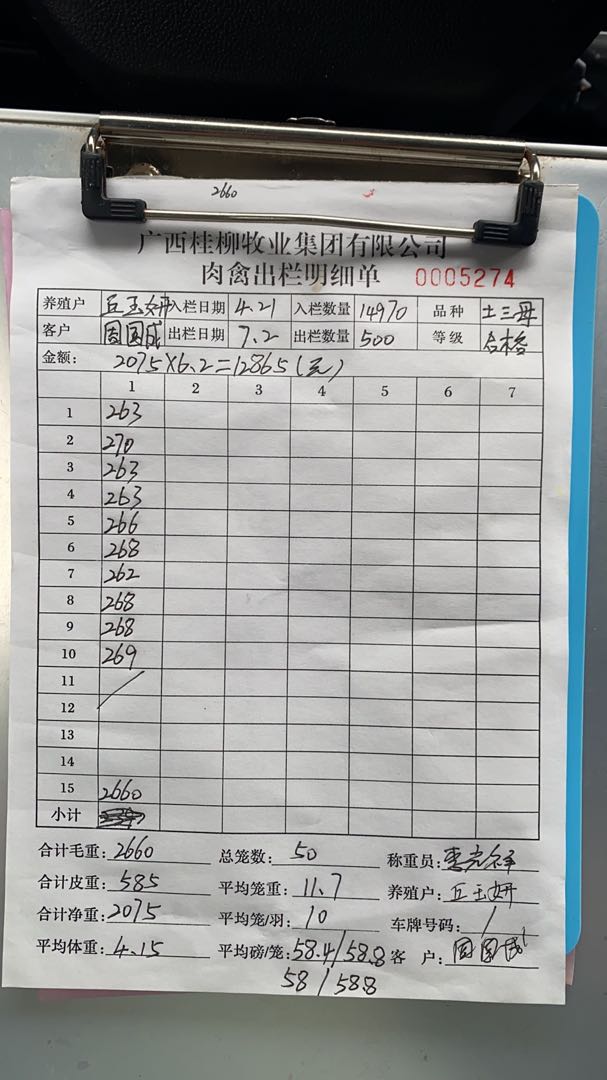 2660
广西桂柳牧业集团有限公司
肉禽出栏明细单 0005274
养殖户 丘玉妍 入栏日期 4.21 入栏数量 14970 品种 土三母
客户 周国成 出栏日期 7.2 出栏数量 500 等级 合格
金额: 2075×6.2=12865(元)
1 2 3 4 5 6 7
1 263
2 270
3 263
4 263
5 266
6 268
7 262
8 268
9 268
10 269
11
12
13
14
15 2660
小计
合计毛重: 2660 总笼数: 50 称重员:
合计皮重: 585 平均笼重: 11.7 养殖户: 丘玉妍
合计净重: 2075 平均笼/羽: 10 车牌号码: /
平均体重: 4.15 平均磅/笼: 58.4/58.8 客户: 周国成
58/58.8